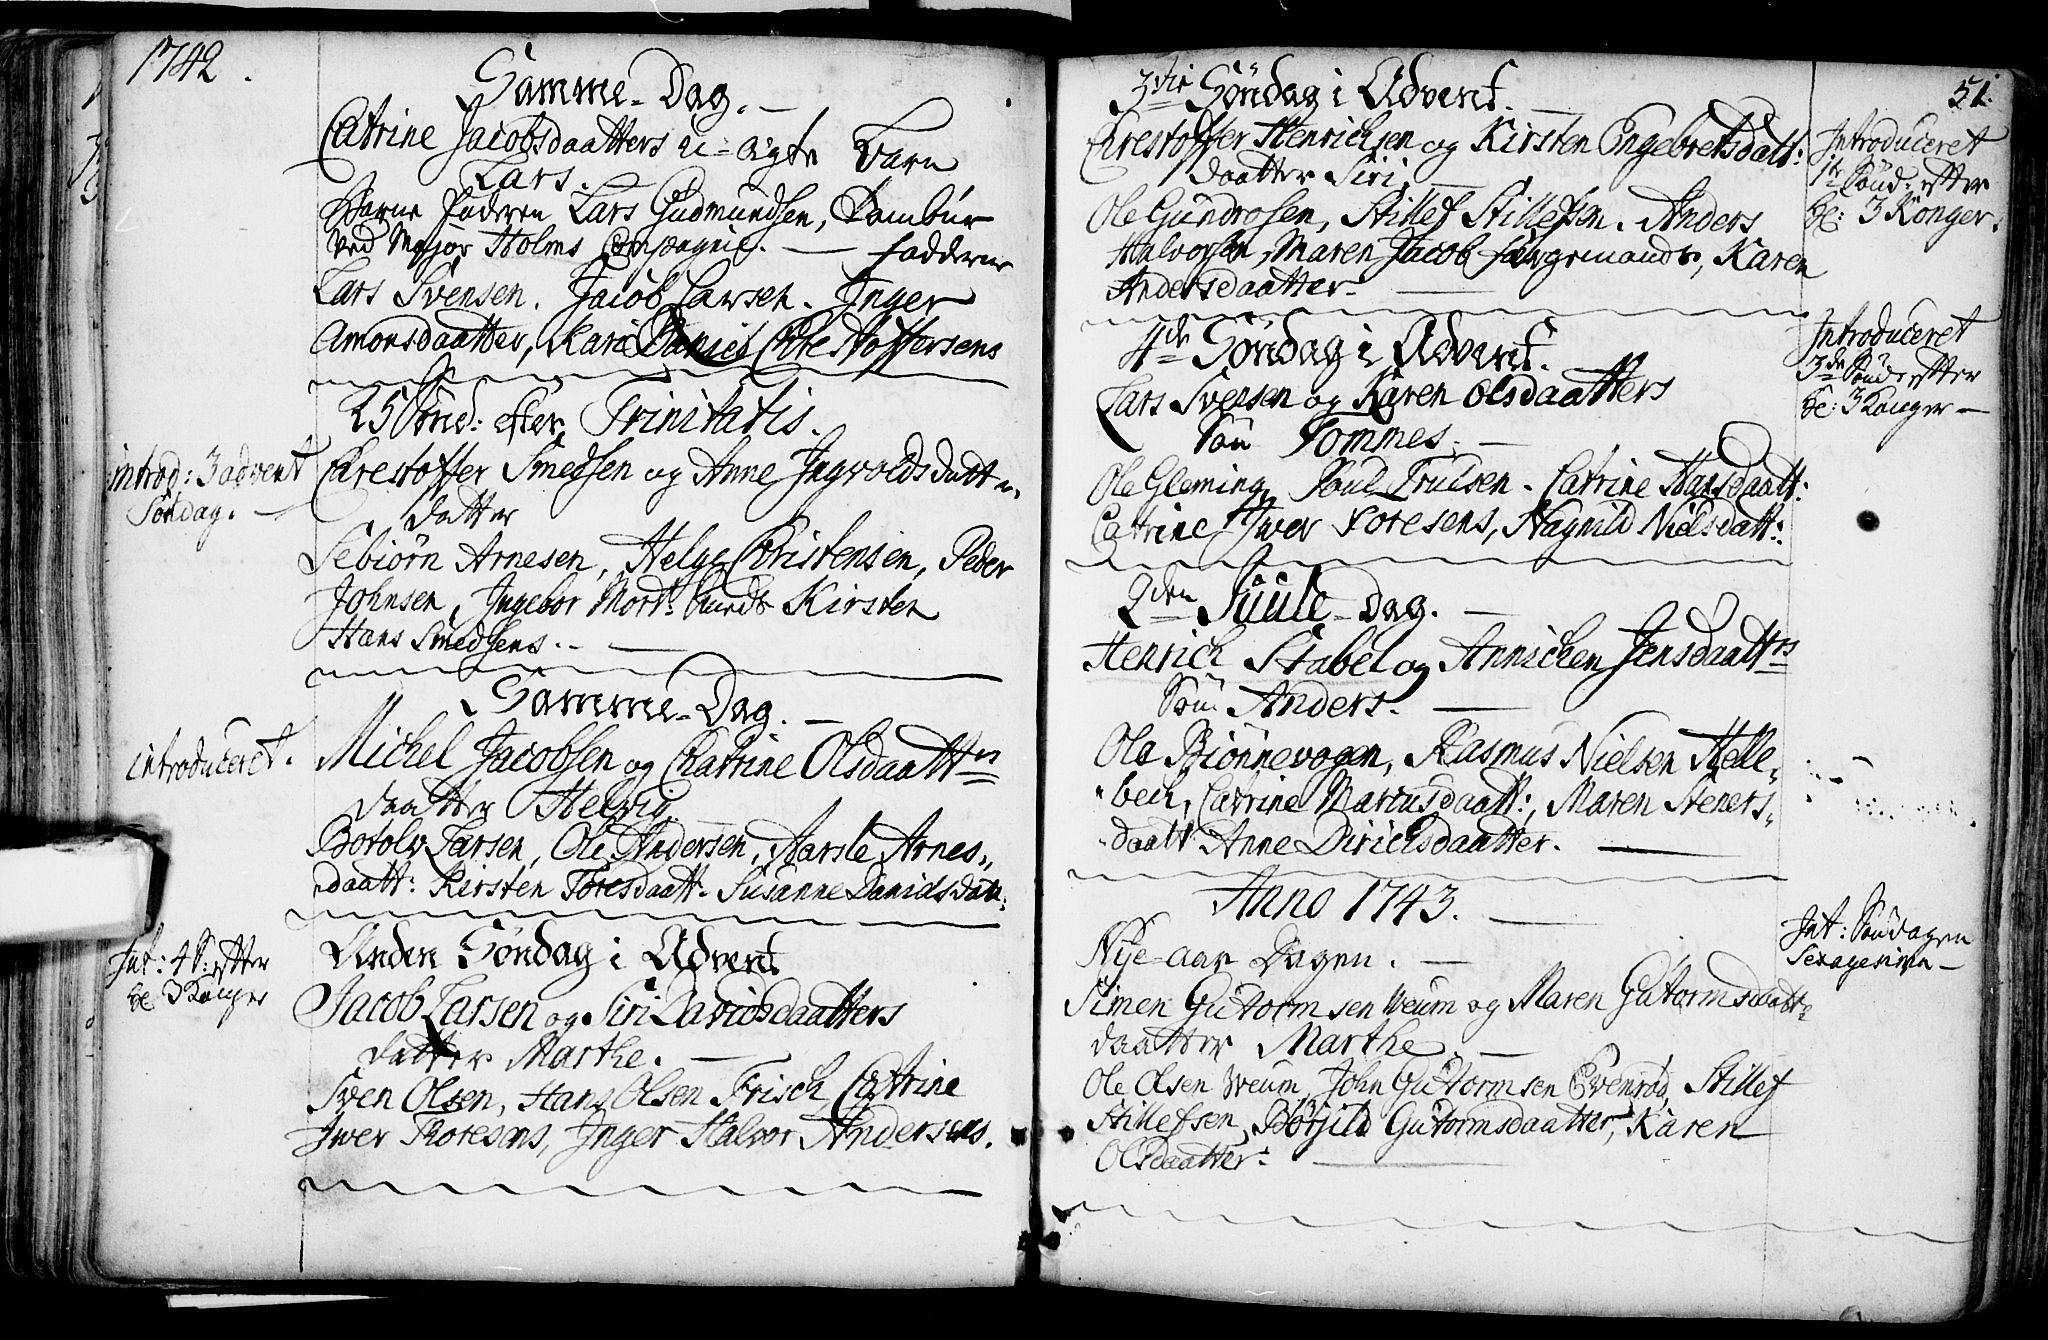 1742.
Samme-Dag.
Catrine Jacobsdaatters u-ægte Barn
Lars.
Barne Faderen Lars Gudmundsen, Tambur
ved Major Holms Compagnie. — Faddere
Lars Svensen. Jacob Larsen. Inger
Amonsdaatter, Kari Christoffersens
25 Sønd: efter Trinitatis.
introd: 3 advent
Søndag.
Chrestoffer Smedsen og Anne Ingvoldsdaatt
datter
Sebiørn Arnesen, Helge Christensen, Peder
Johnsen, Ingebor Mort: Kirsten
Hans Smedsens.
Samme-Dag.
introduceret.
Michel Jacobsen og Chatrine Olsdaattrs
daatter Helvig.
Botolv Larsen, Ole Andersen, Aarste Arnes-
daatt: Kirsten Toresdaatt. Susanne Danielsdaatt:
Anden Søndag i Advent
Int: 4 S: efter
He: 3 Konger
Jacob Larsen og Siri Davidsdaatters
datter Marthe.
Sven Olsen, Hans Olsen Frisch, Catrine
Iver Thoresens, Inger Halvor Andersens.
51.
3die Søndag i Advent.
Chrestoffer Henrichsen og Kirsten Engebretsdatt:
daatter Siri.
Introduceret
1te Sønd: efter
He: 3 Konger.
Ole Gundrosen, Stillef Stillefsen. Anders
Halvorsen, Maren Jacob færgemands, Karen
Andersdaatter.
4de Søndag i Advent.
Introduceret
3de Sønd: efter
He: 3 Konger —
Lars Svensen og Karen Olsdaatters
Søn Tommes.
Ole Gleming, Poul Trulsen. Catrine Hansdaatt:
Catrine Iver Toresens, Hagnild Nielsdatt:
2den Juule-Dag.
Henrich Stabel og Annichen Jensdaattrs
Søn Anders.
Ole Biønnevogen, Rasmus Nielsen Helle-
bech, Catrine Mariusdaatt:, Maren Steners-
daatt Anne Dirichsdaatter.
Anno 1743.
Nye-aar Dagen.
Int: Søndagen
Sexagesima —
Simen Gutormsen Veum og Maren Gutormsdaatt
daatter Marthe.
Ole Olsen Veum, John Gutormsen Evenrød, Stillef
Stillefsen, Børsild Gutormsdaatter, Karen
Olsdaatter.